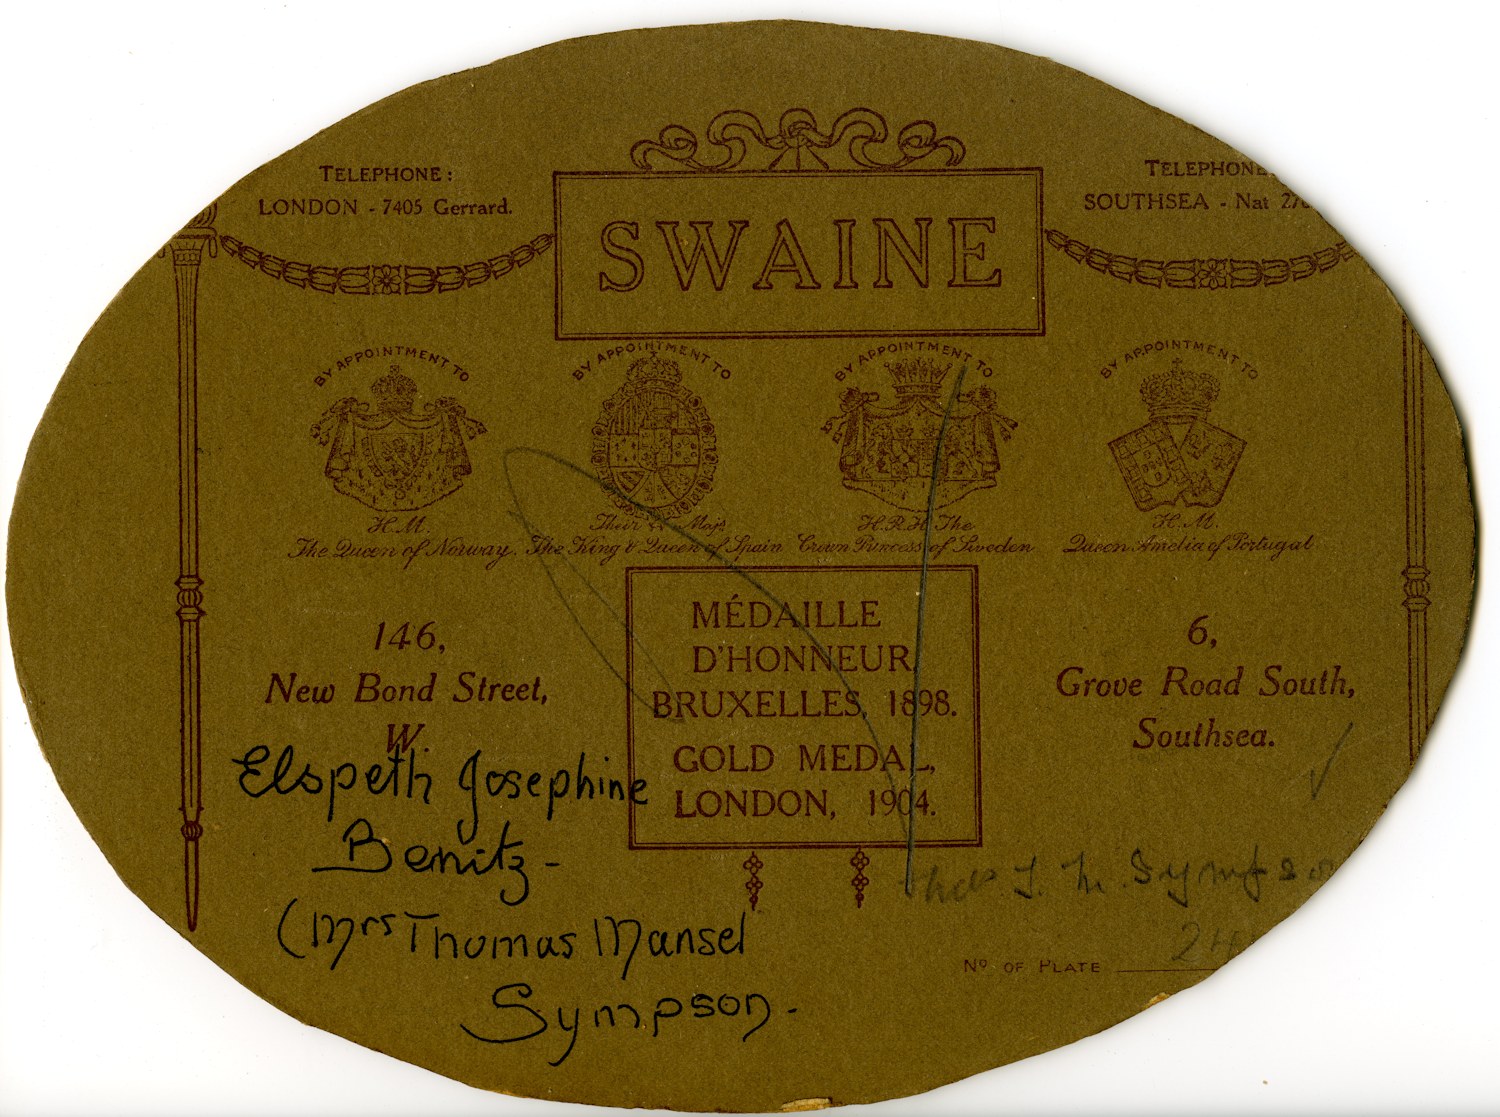 TELEPHONE:
LONDON - 7405 Gerrard.
SWAINE
TELEPHONE
SOUTHSEA - Nat
BY APPOINTMENT TO
H.M.
The Queen of Norway.
BY APPOINTMENT TO
Their Majs
The King & Queen of Spain
BY APPOINTMENT TO
H.R.H. The
Crown Princess of Sweden
BY APPOINTMENT TO
H.M.
Queen Amelia of Portugal
146,
New Bond Street,
W.
MÉDAILLE
D'HONNEUR,
BRUXELLES, 1898.
GOLD MEDAL,
LONDON, 1904.
6,
Grove Road South,
Southsea.
Elspeth Josephine
Benitz-
(Mrs Thomas Mansel
Sympson.
T. M. Sympson
Nº OF PLATE